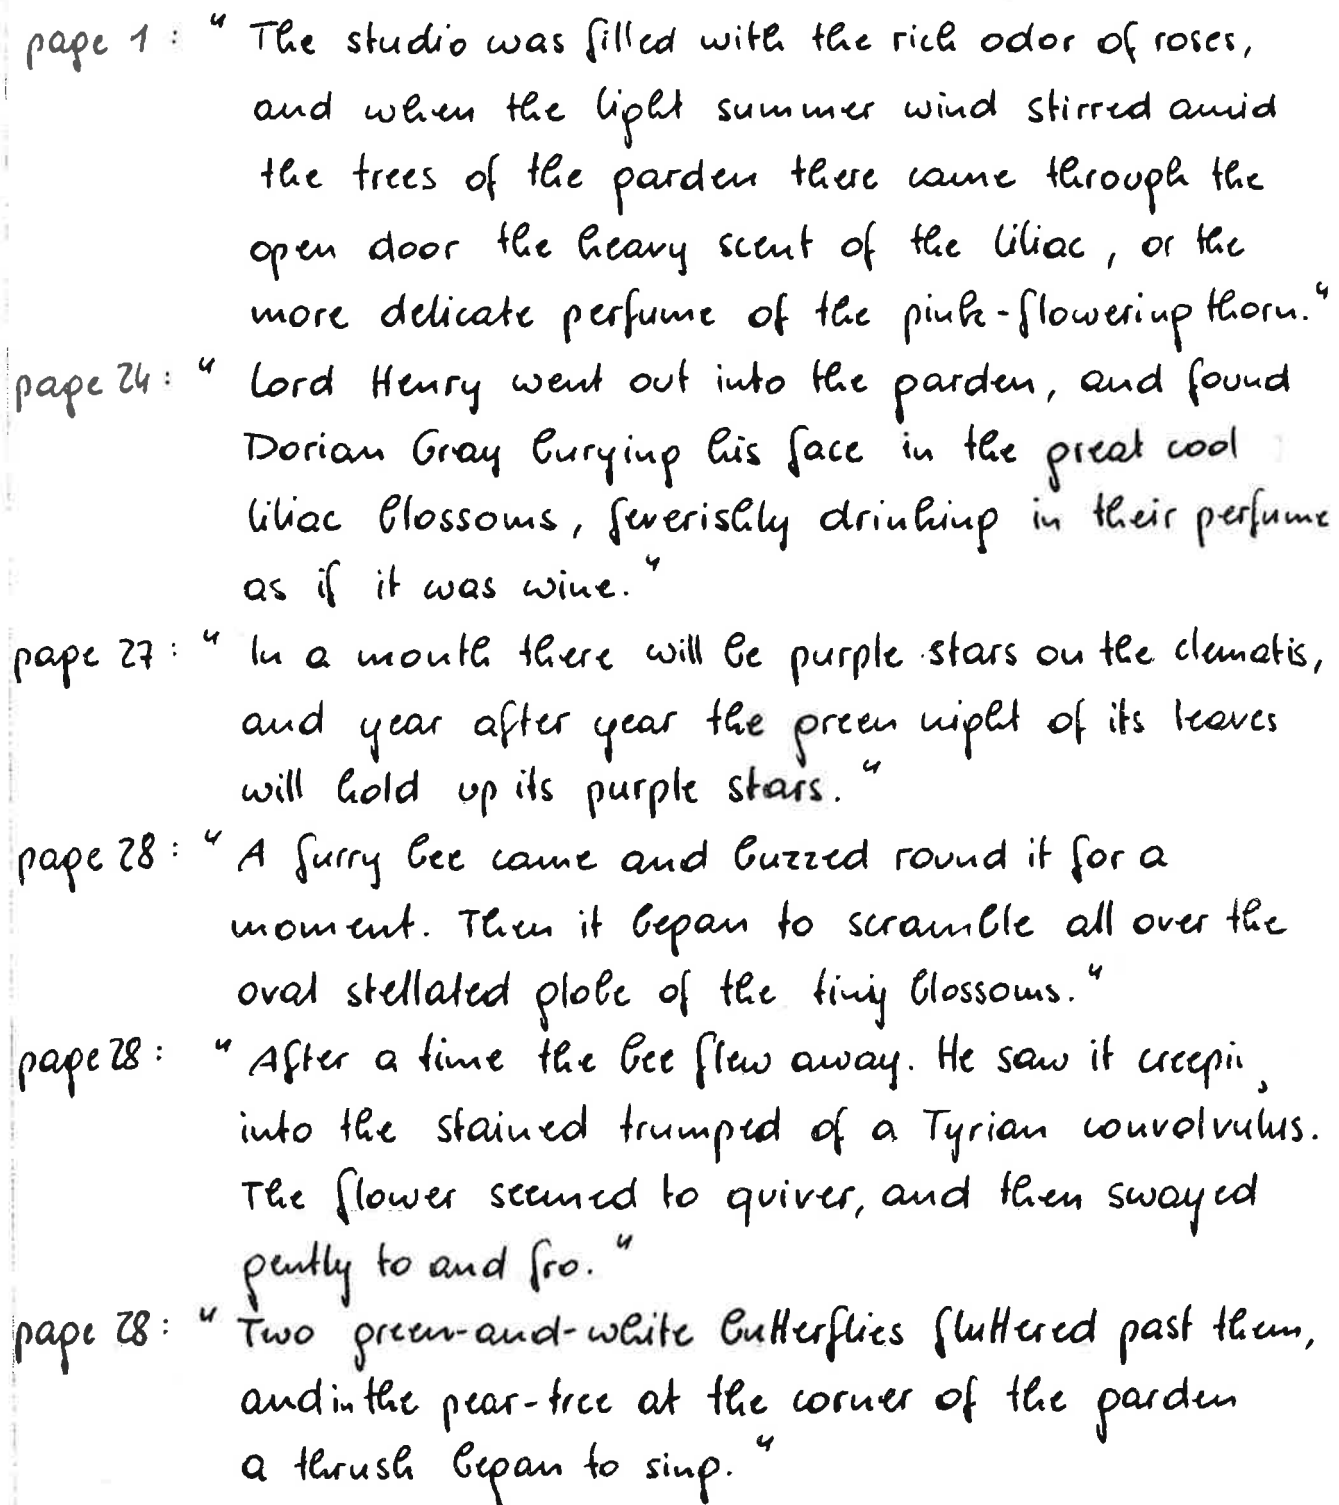 page 1 : " The studio was filled with the rich odor of roses,
and when the light summer wind stirred amid
the trees of the garden there came through the
open door the heavy scent of the liliac, or the
more delicate perfume of the pink-flowering thorn."
page 24 : " Lord Henry went out into the garden, and found
Dorian Gray burying his face in the great cool
liliac blossoms, feverishly drinking in their perfume
as if it was wine."
page 27 : " In a month there will be purple stars on the clematis,
and year after year the green night of its leaves
will hold up its purple stars."
page 28 : " A furry bee came and buzzed round it for a
moment. Then it began to scramble all over the
oval stellated globe of the tiny blossoms."
page 28 : " After a time the bee flew away. He saw it
into the stained trumped of a Tyrian convolvulus.
The flower seemed to quiver, and then swayed
gently to and fro."
page 28 : " Two green-and-white butterflies fluttered past them,
and in the pear-tree at the corner of the garden
a thrush began to sing."